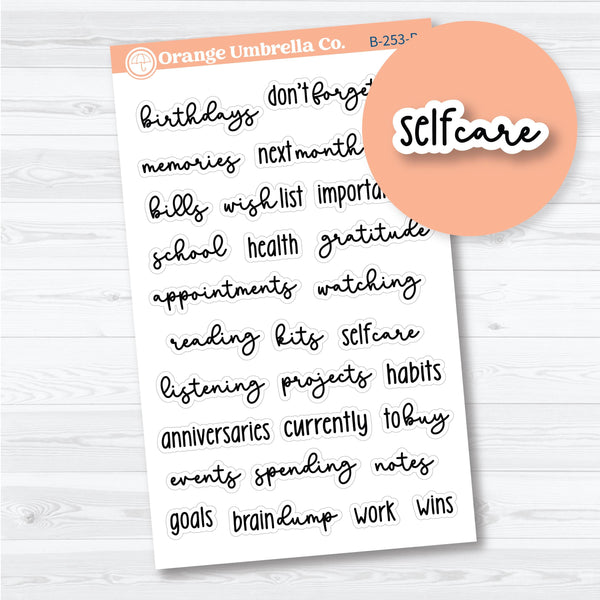 Orange Umbrella Co. B-253-B
birthdays don't forget
memories next month
bills wish list important
school health gratitude
appointments watching
reading kits selfcare
listening projects habits
anniversaries currently to buy
events spending notes
goals brain dump work wins
selfcare